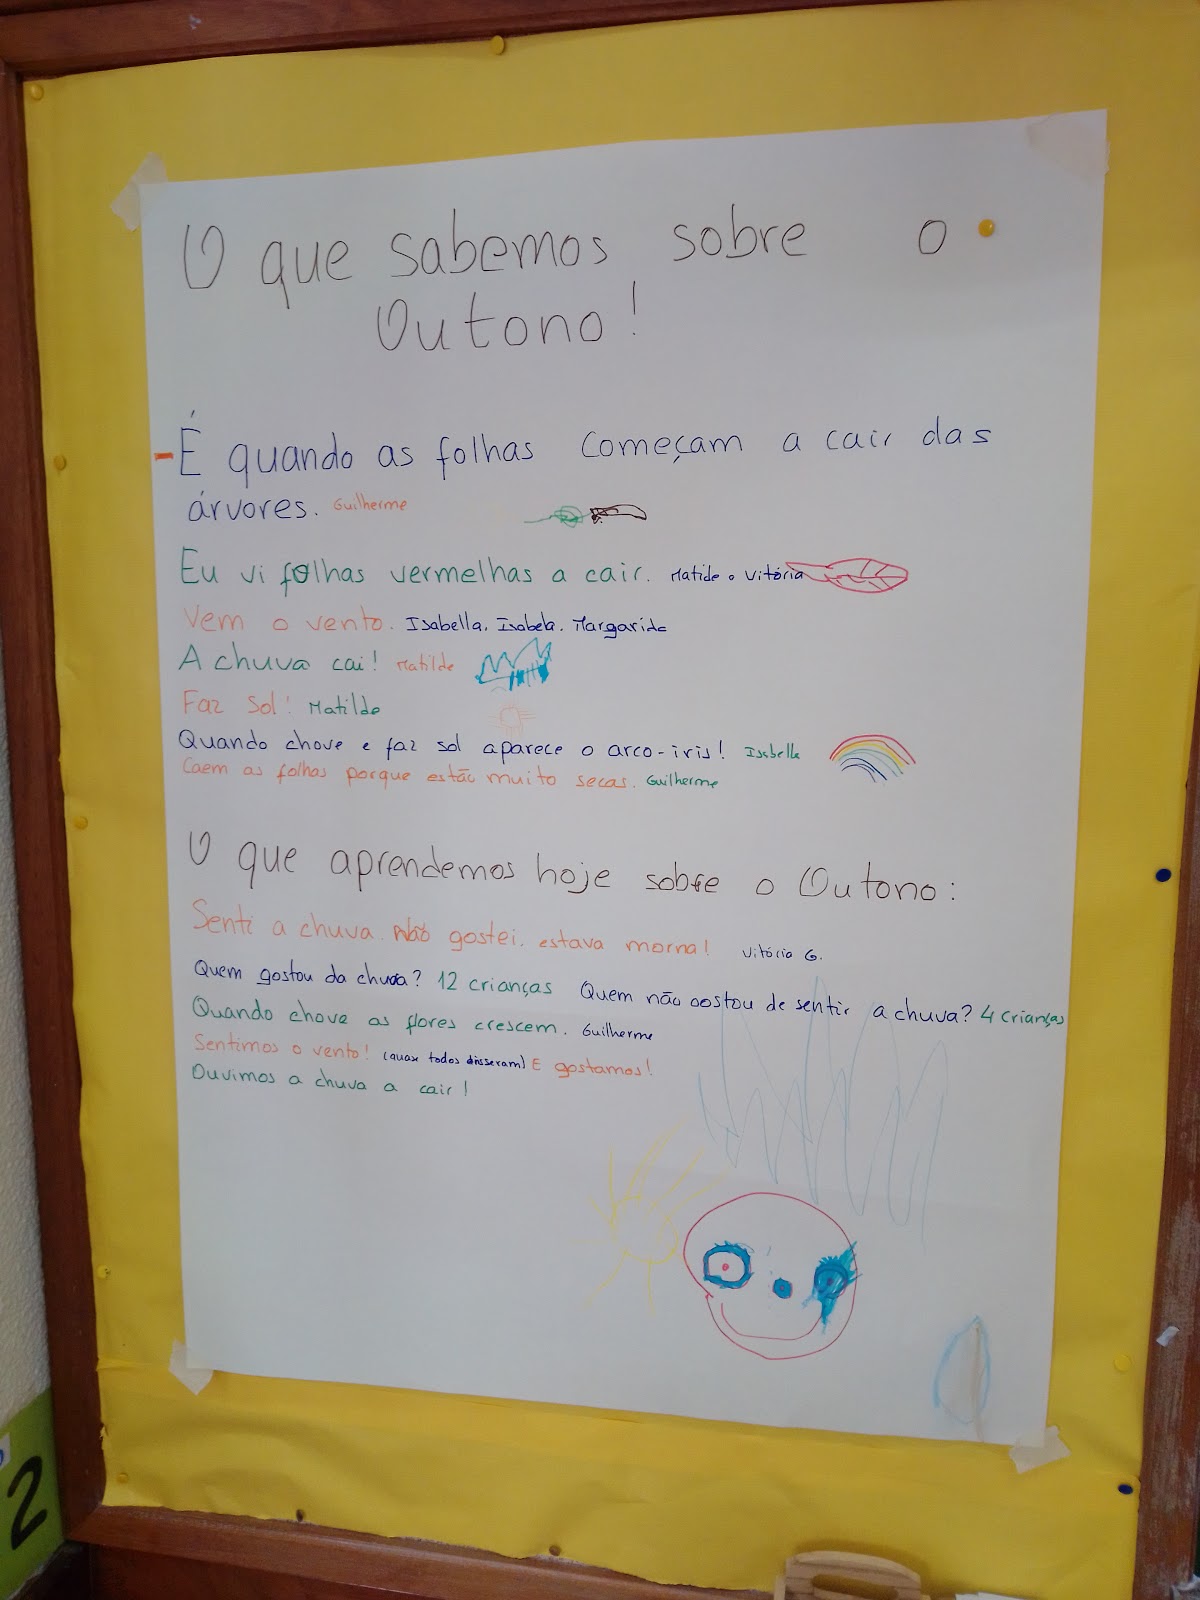 O que sabemos sobre o
Outono!
- É quando as folhas começam a cair das
árvores. Guilherme
Eu vi folhas vermelhas a cair. Matilde e Vitória
Vem o vento. Isabella. Isabela. Margarida
A chuva cai! Matilde
Faz Sol! Matilde
Quando chove e faz sol aparece o arco-iris! Isabella
Caem as folhas porque estão muito secas. Guilherme
O que aprendemos hoje sobre o Outono:
Senti a chuva. Não gostei. estava morna! Vitória G.
Quem gostou da chuva? 12 crianças Quem não gostou de sentir a chuva? 4 crianças
Quando chove as flores crescem. Guilherme
Sentimos o vento! (quase todos disseram) E gostamos!
Ouvimos a chuva a cair!
2